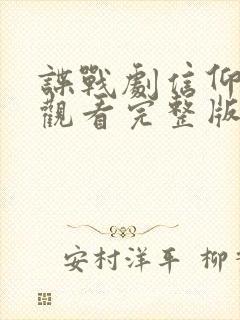 諜戰劇信仰
觀看完整版
安村洋平 柳